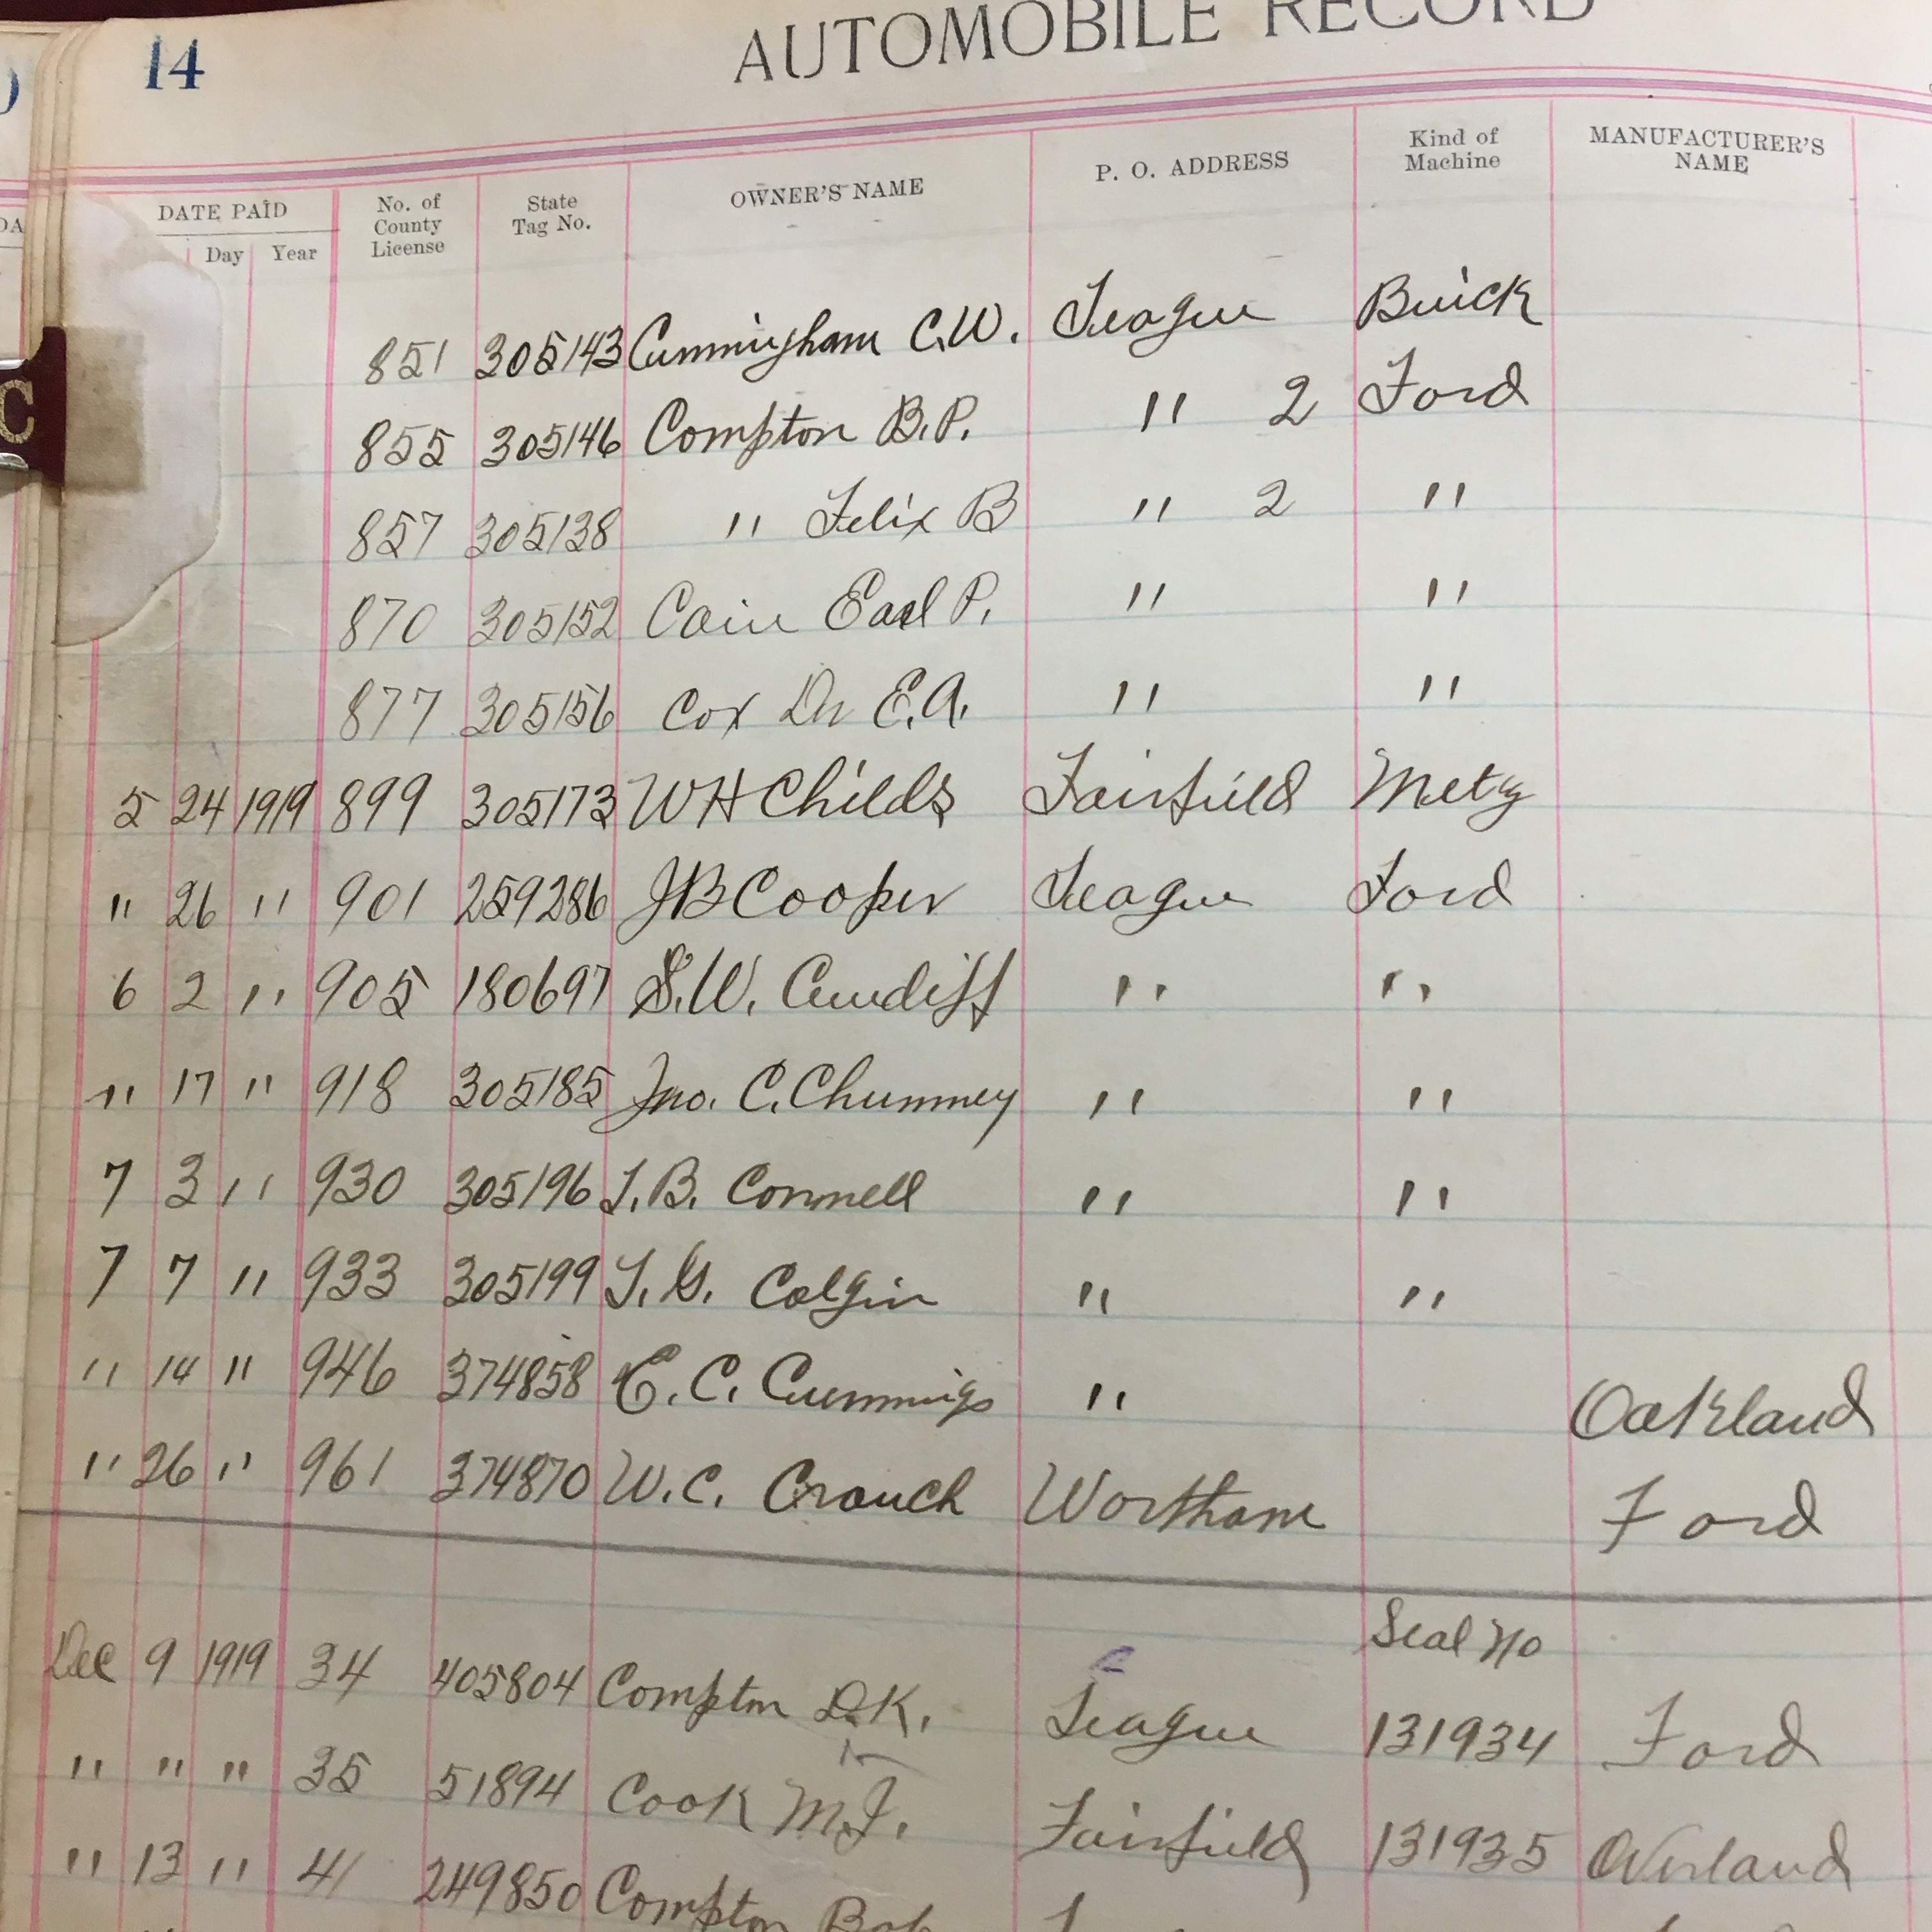 14
AUTOMOBILE RECORD
DATE PAID No. of County License State Tag No. OWNER'S NAME P. O. ADDRESS Kind of Machine MANUFACTURER'S NAME
Day Year
851 305143 Cunningham C.W. Teague Buick
855 305146 Compton B.P. " 2 Ford
857 305138 " Felix B " 2 "
870 305152 Cain Earl P. " "
877 305156 Cox Dr E.A. " "
5 24 1919 899 305173 WH Childs Fairfield Metz
" 26 " 901 259286 JB Cooper Teague Ford
6 2 " 905 180697 S.W. Cundiff " "
" 17 " 918 305185 Jno. C. Chumney " "
7 3 " 930 305196 T.B. Connell " "
7 7 " 933 305199 T.G. Colgin " "
" 14 " 946 374858 E.C. Cummings " Oakland
" 26 " 961 374870 W.C. Crouch Wortham Ford
Seal No
Dec 9 1919 34 405804 Compton D.K. Teague 131934 Ford
" " " 35 51894 Cook M.J. Fairfield 131935 Overland
" 13 " 41 249850 Compton Bob